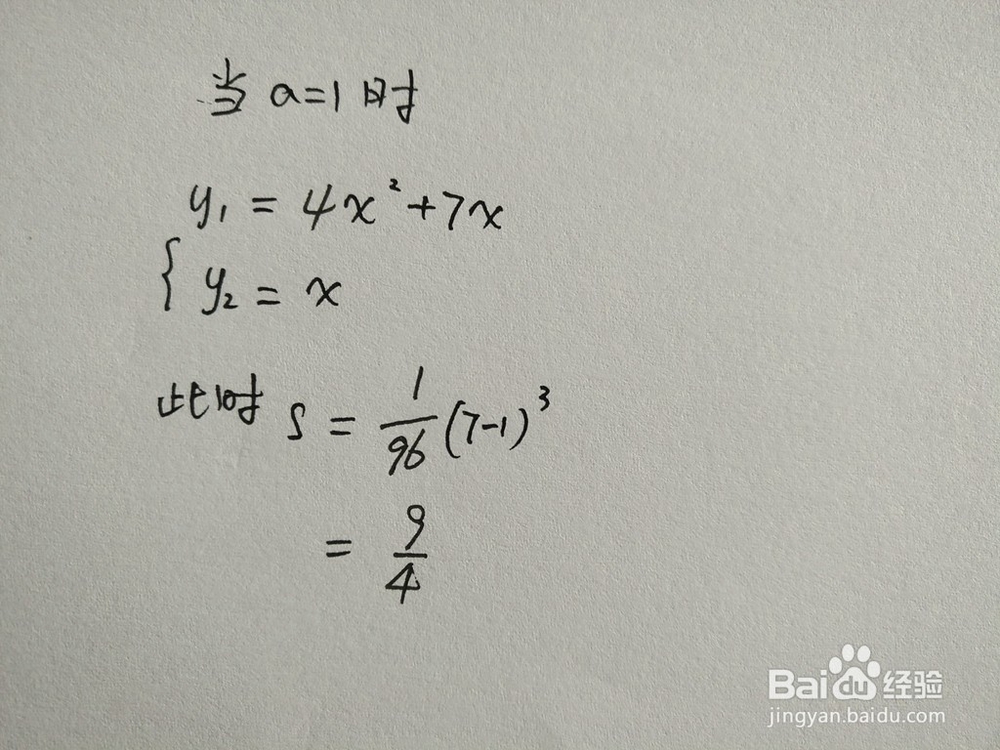 当 a=1 时
y₁ = 4x²+7x
{ y₂ = x
此时 S = 1/96 (7-1)³
= 9/4
Baidu 经验
jingyan.baidu.com